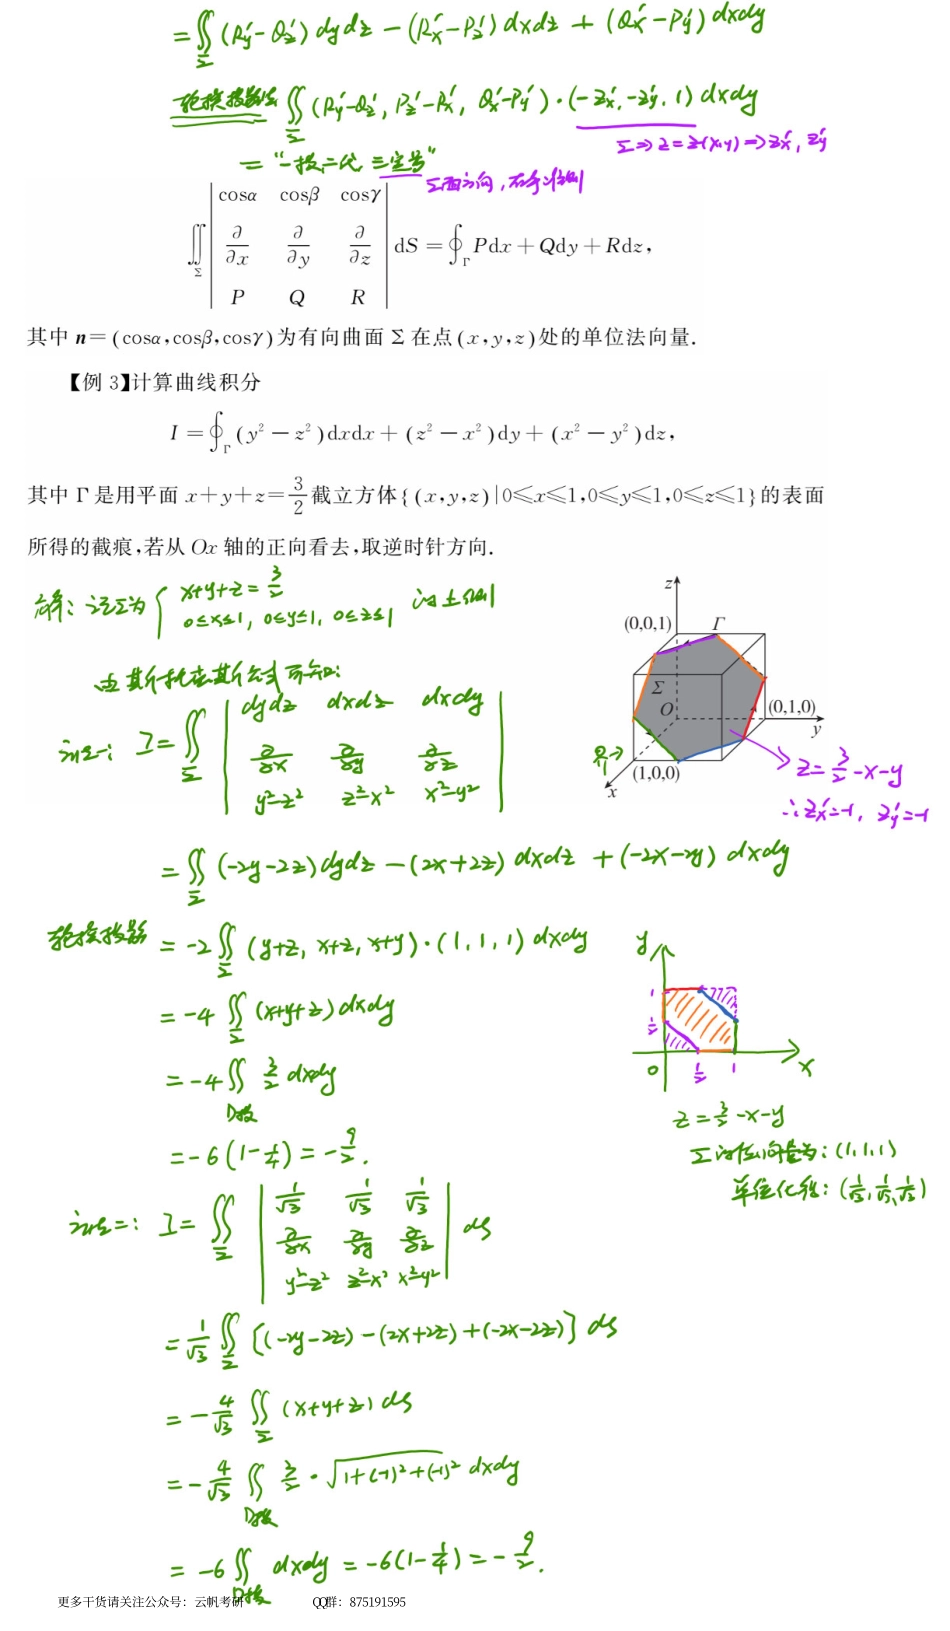 = ∬_Σ (R'y - Q'z) dydz - (R'x - P'z) dxdz + (Q'x - P'y) dxdy
轮换投影法 ∬_Σ (R'y - Q'z, P'z - R'x, Q'x - P'y) · (-z'x, -z'y, 1) dxdy
Σ ⇒ z = z(x,y) ⇒ z'x, z'y
= "一投二代三定号"
Σ面方向，右手准则
∬_Σ | cosα cosβ cosγ |
| ∂/∂x ∂/∂y ∂/∂z | dS = ∮_Γ Pdx + Qdy + Rdz,
| P Q R |
其中 n = (cosα, cosβ, cosγ) 为有向曲面 Σ 在点 (x, y, z) 处的单位法向量.
【例 3】计算曲线积分
I = ∮_Γ (y² - z²)dxdx + (z² - x²)dy + (x² - y²)dz,
其中 Γ 是用平面 x+y+z=3/2 截立方体{(x,y,z)|0≤x≤1,0≤y≤1,0≤z≤1}的表面
所得的截痕,若从 Ox 轴的正向看去,取逆时针方向.
解: 记Σ为 { x+y+z = 3/2
0≤x≤1, 0≤y≤1, 0≤z≤1 的上侧
z
(0,0,1) Γ
Σ
O (0,1,0)
y
(1,0,0)
x
z = 3/2 - x - y
∴ z'x = -1, z'y = -1
由斯托克斯公式可知:
法一: I = ∬_Σ | dydz dxdz dxdy |
| ∂/∂x ∂/∂y ∂/∂z |
| y²-z² z²-x² x²-y² |
= ∬_Σ (-2y-2z) dydz - (2x+2z) dxdz + (-2x-2y) dxdy
轮换投影 = -2 ∬_Σ (y+z, x+z, x+y) · (1, 1, 1) dxdy
= -4 ∬_Σ (x+y+z) dxdy
= -4 ∬_D投 3/2 dxdy
= -6 (1 - 1/4) = -9/2.
y
1
1/2
0 1/2 1 x
z = 3/2 - x - y
Σ的法向量为: (1,1,1)
单位化后: (1/√3, 1/√3, 1/√3)
法二: I = ∬_Σ | 1/√3 1/√3 1/√3 |
| ∂/∂x ∂/∂y ∂/∂z | ds
| y²-z² z²-x² x²-y² |
= 1/√3 ∬_Σ [(-2y-2z) - (2x+2z) + (-2x-2z)] ds
= -4/√3 ∬_Σ (x+y+z) ds
= -4/√3 ∬_D投 3/2 · √(1+(-1)²+(-1)²) dxdy
= -6 ∬_D投 dxdy = -6(1 - 1/4) = -9/2.
更多干货请关注公众号：云帆考研 QQ群：875191595